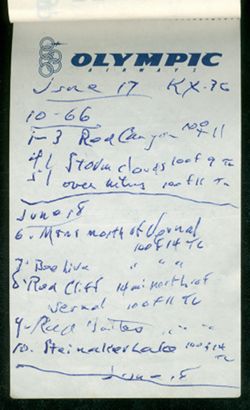 OLYMPIC
AIRWAYS
June 17 KX-36
10-66
1-3 Red Canyon 100 f 11
4 Storm clouds 100 f 9 Tc
5 over 100 f 11 Tc
June 18
6. Mtns north of Vernal
100 f 14 Tc
7. Beehive " " "
8. Red Cliff 14 mi north of
Vernal 100 f 11 Tc
9. Red " " "
10. Steinaker Lake 100 f 14
Tc
June 18